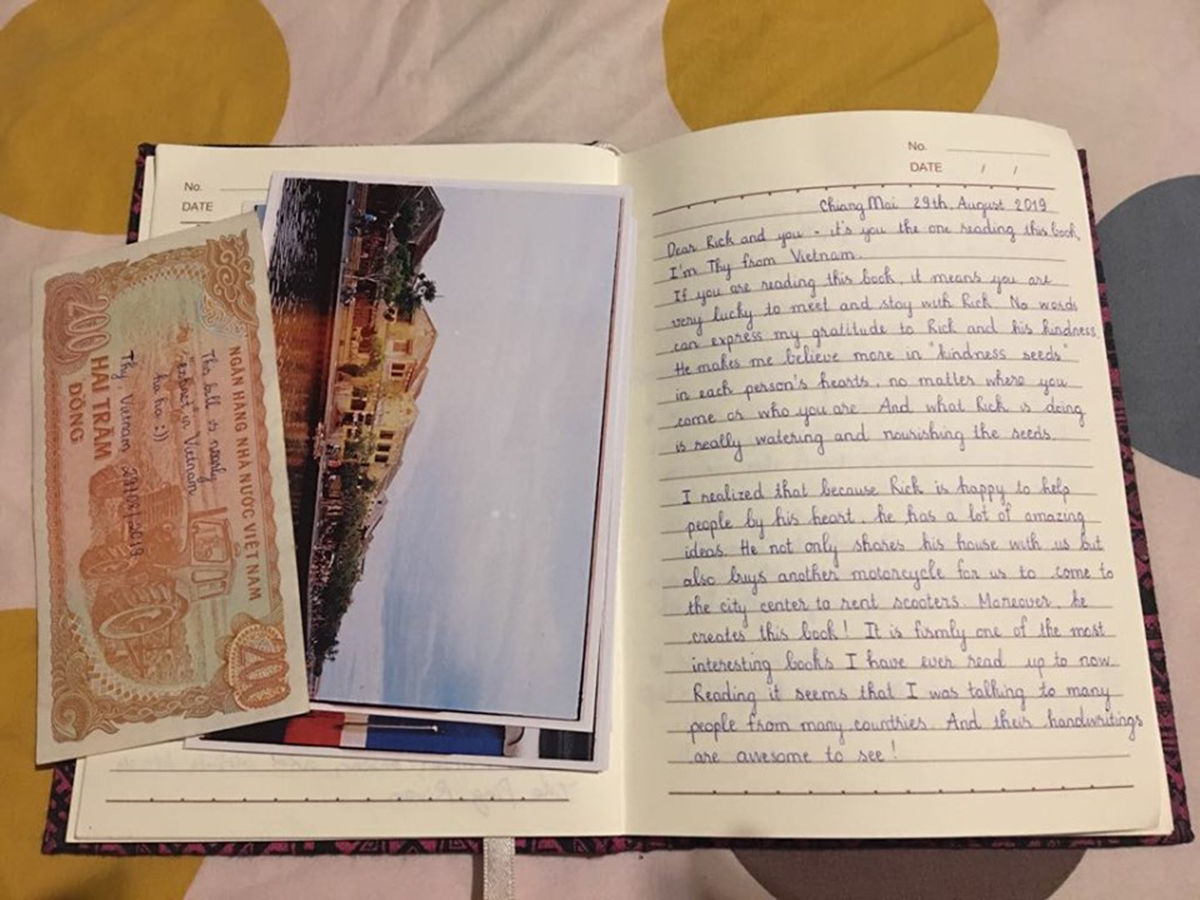 No.
DATE
NGÂN HÀNG NHÀ NƯỚC VIỆT NAM
200
200
HAI TRĂM
ĐỒNG
The bill is nearly
in Vietnam
ha ha :))
Thy, Vietnam,
No.
DATE / /
Chiang Mai 29th, August 2019
Dear Rick and you - it's you the one reading this book,
I'm Thy from Vietnam.
If you are reading this book, it means you are
very lucky to meet and stay with Rick. No words
can express my gratitude to Rick and his kindness.
He makes me believe more in "kindness seeds"
in each person's hearts, no matter where you
come or who you are. And what Rick is doing
is really watering and nourishing the seeds.
I realized that because Rick is happy to help
people by his heart, he has a lot of amazing
ideas. He not only shares his house with us but
also buys another motorcycle for us to come to
the city center to rent scooters. Moreover, he
creates this book! It is firmly one of the most
interesting books I have ever read up to now.
Reading it seems that I was talking to many
people from many countries. And their handwritings
are awesome to see!